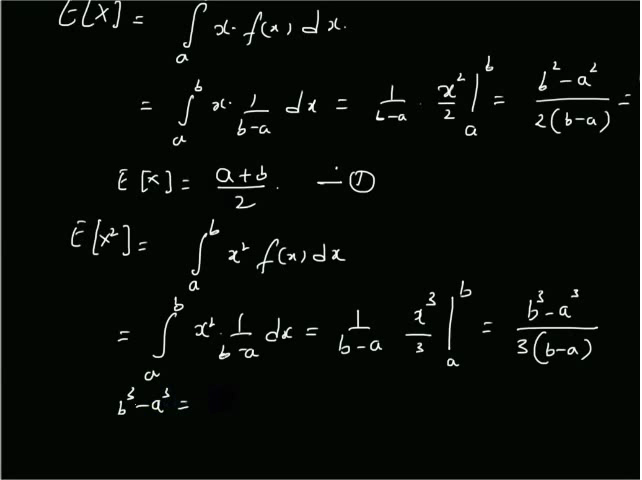 E[X] = ∫ₐ x. f(x) dx.
= ∫ₐᵇ x. 1/(b-a) dx = 1/(b-a) . x²/2 |ₐᵇ = (b²-a²)/(2(b-a)) =
E[x] = (a+b)/2. — ①
E[x²] = ∫ₐᵇ x² f(x) dx
= ∫ₐᵇ x². 1/(b-a) dx = 1/(b-a) x³/3 |ₐᵇ = (b³-a³)/(3(b-a))
b³-a³ =